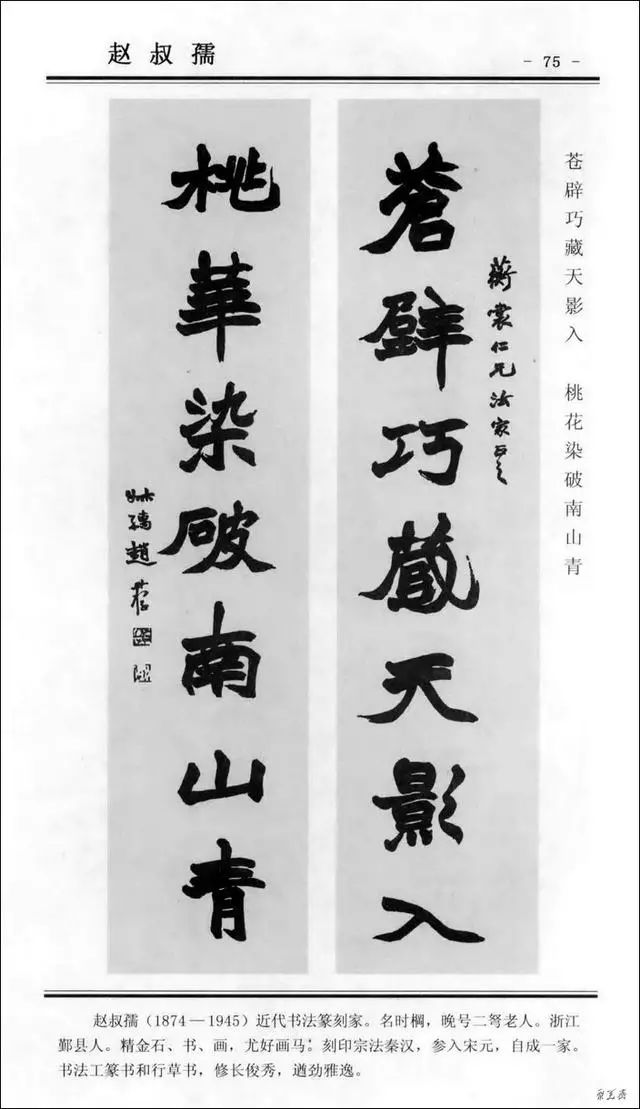 赵叔孺
- 75 -
苍辟巧藏天影入 桃花染破南山青
蒼壁巧藏天影入
蘅裳仁兄法家正之
桃華染破南山青
叔孺趙
赵叔孺（1874—1945）近代书法篆刻家。名时棡，晚号二弩老人。浙江
鄞县人。精金石、书、画，尤好画马。刻印宗法秦汉，参入宋元，自成一家。
书法工篆书和行草书，修长俊秀，遒劲雅逸。